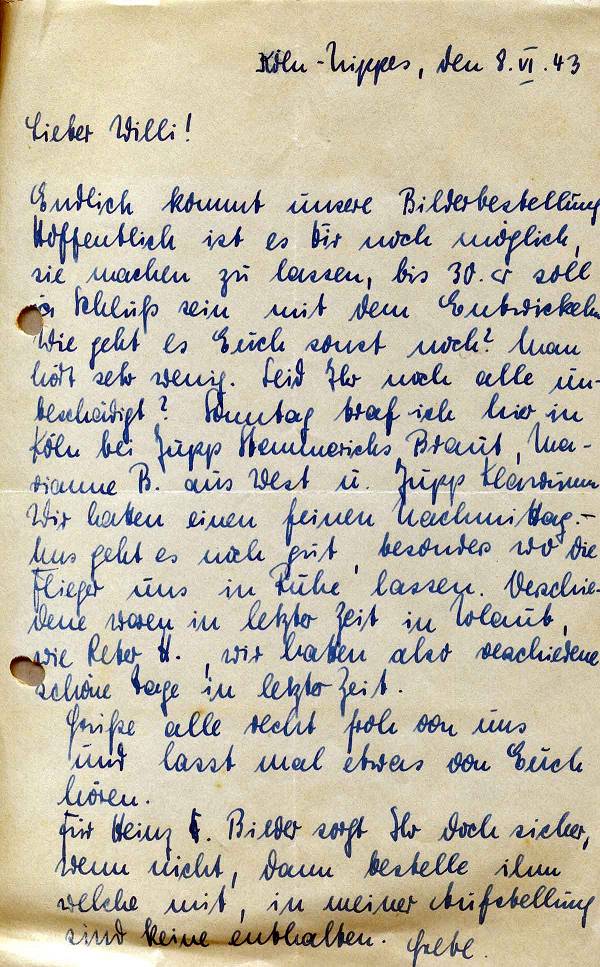 Köln-Nippes, den 8.VI.43
Lieber Willi!
Endlich kommt unsere Bilderbestellung
Hoffentlich ist es Dir noch möglich,
sie machen zu lassen, bis 30. er soll
ja Schluß sein mit dem Entwickeln
Wie geht es Euch sonst noch? Man
hört sehr wenig. Seid Ihr noch alle un-
beschädigt? Sonntag traf ich hier in
Köln bei Jupp Stemmerichs Braut, Ma-
rianne B. aus West u. Jupp
Wir hatten einen feinen Nachmittag.-
Uns geht es noch gut, besonders wo die
Flieger uns in Ruhe lassen. Veschie-
dene waren in letzter Zeit in Urlaub,
wie Peter H., wir hatten also veschiedene
schöne Tage in letzter Zeit.
Grüße alle recht froh von uns
und lasst mal etwas von Euch
hören.
Für Heinz . Bilder sorgt Ihr doch sicher,
wenn nicht, dann bestelle ihm
welche mit, in meiner Aufstellung
sind keine enthalten.